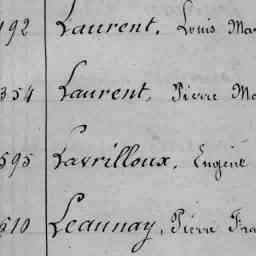 192 Laurent, Louis Ma
354 Laurent, Pierre Ma
595 Lavrilloux, Eugène
510 Leaunay, Pierre Fra